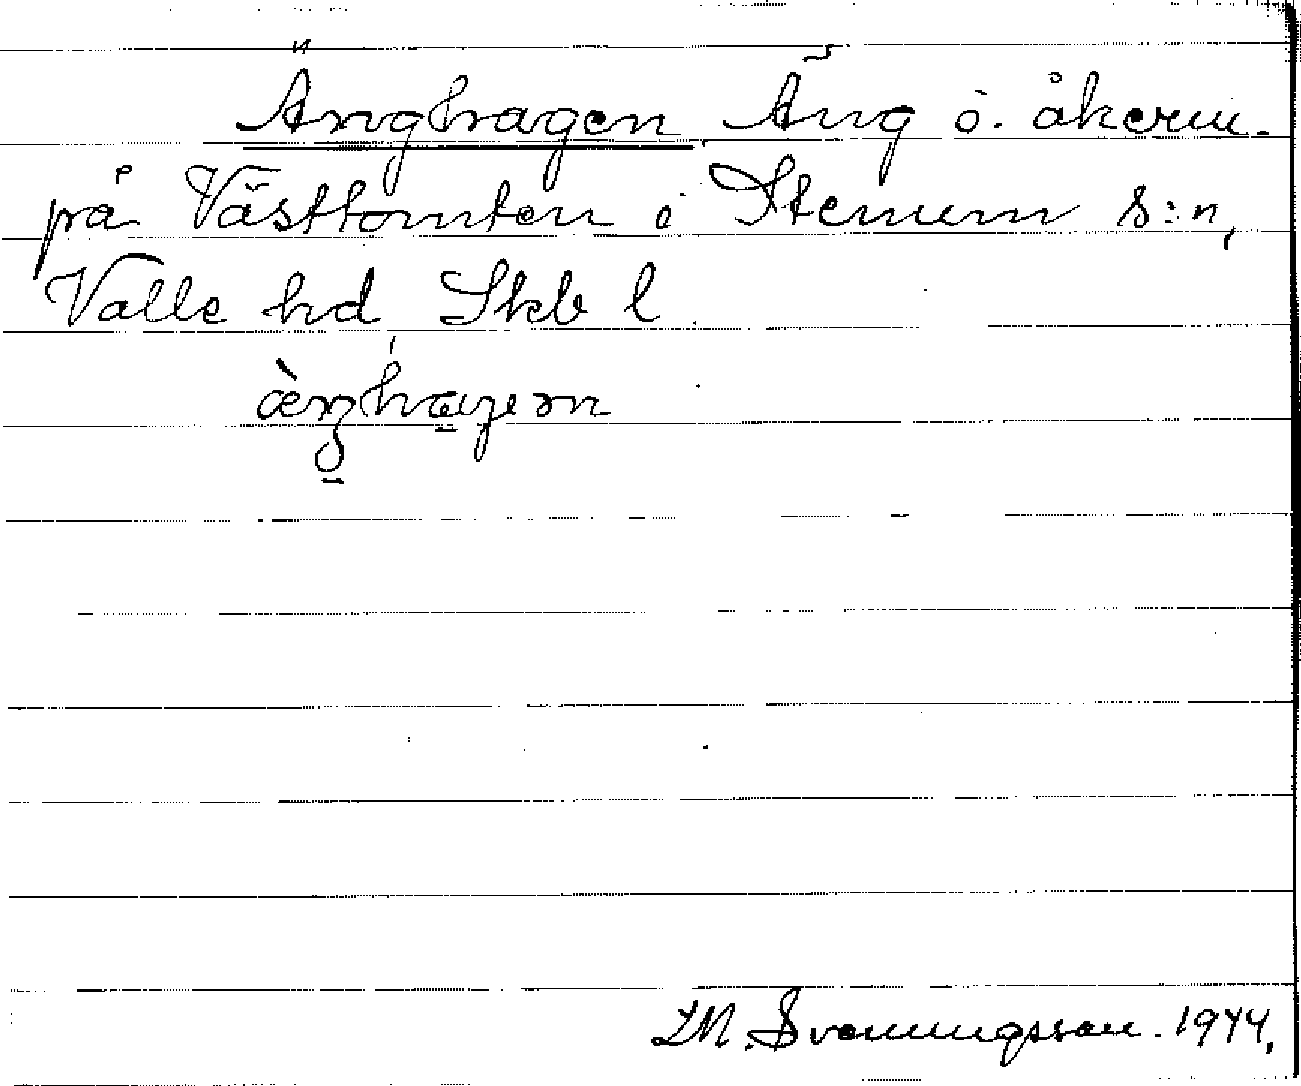 Änghagen Äng o. åkerm.
på Västtomten i Stenum s:n,
Valle hd Skb l
Svenningsson. 1944.